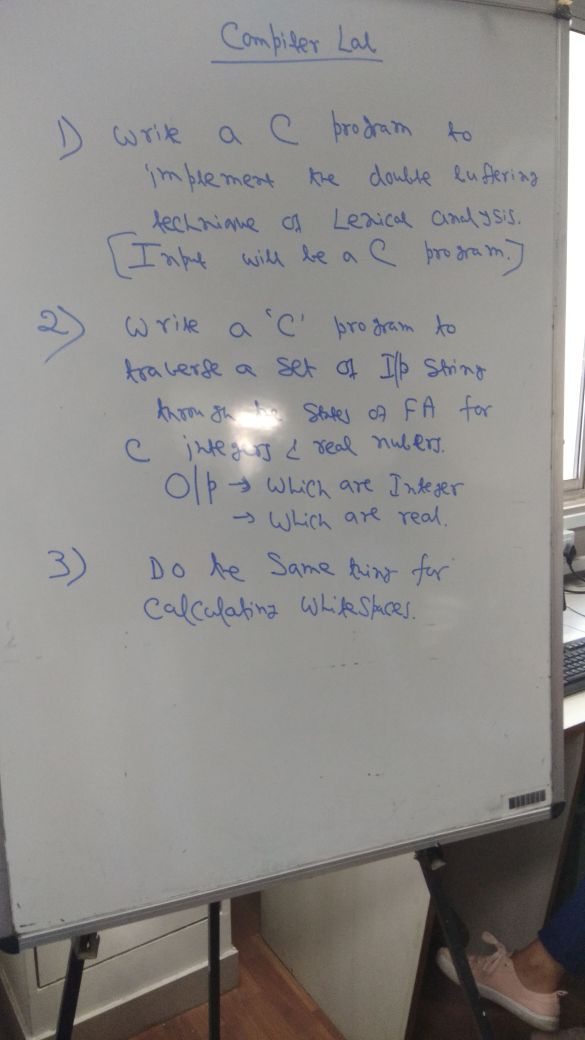 Compiler Lab
1) Write a C program to
implement the double buffering
technique of Lexical analysis.
[Input will be a C program.]
2) Write a 'C' program to
traverse a set of I/p string
through the states of FA for
C integers & real nubers.
O/p → Which are Integer
→ Which are real.
3) Do the Same thing for
Calculating WhiteSpaces.